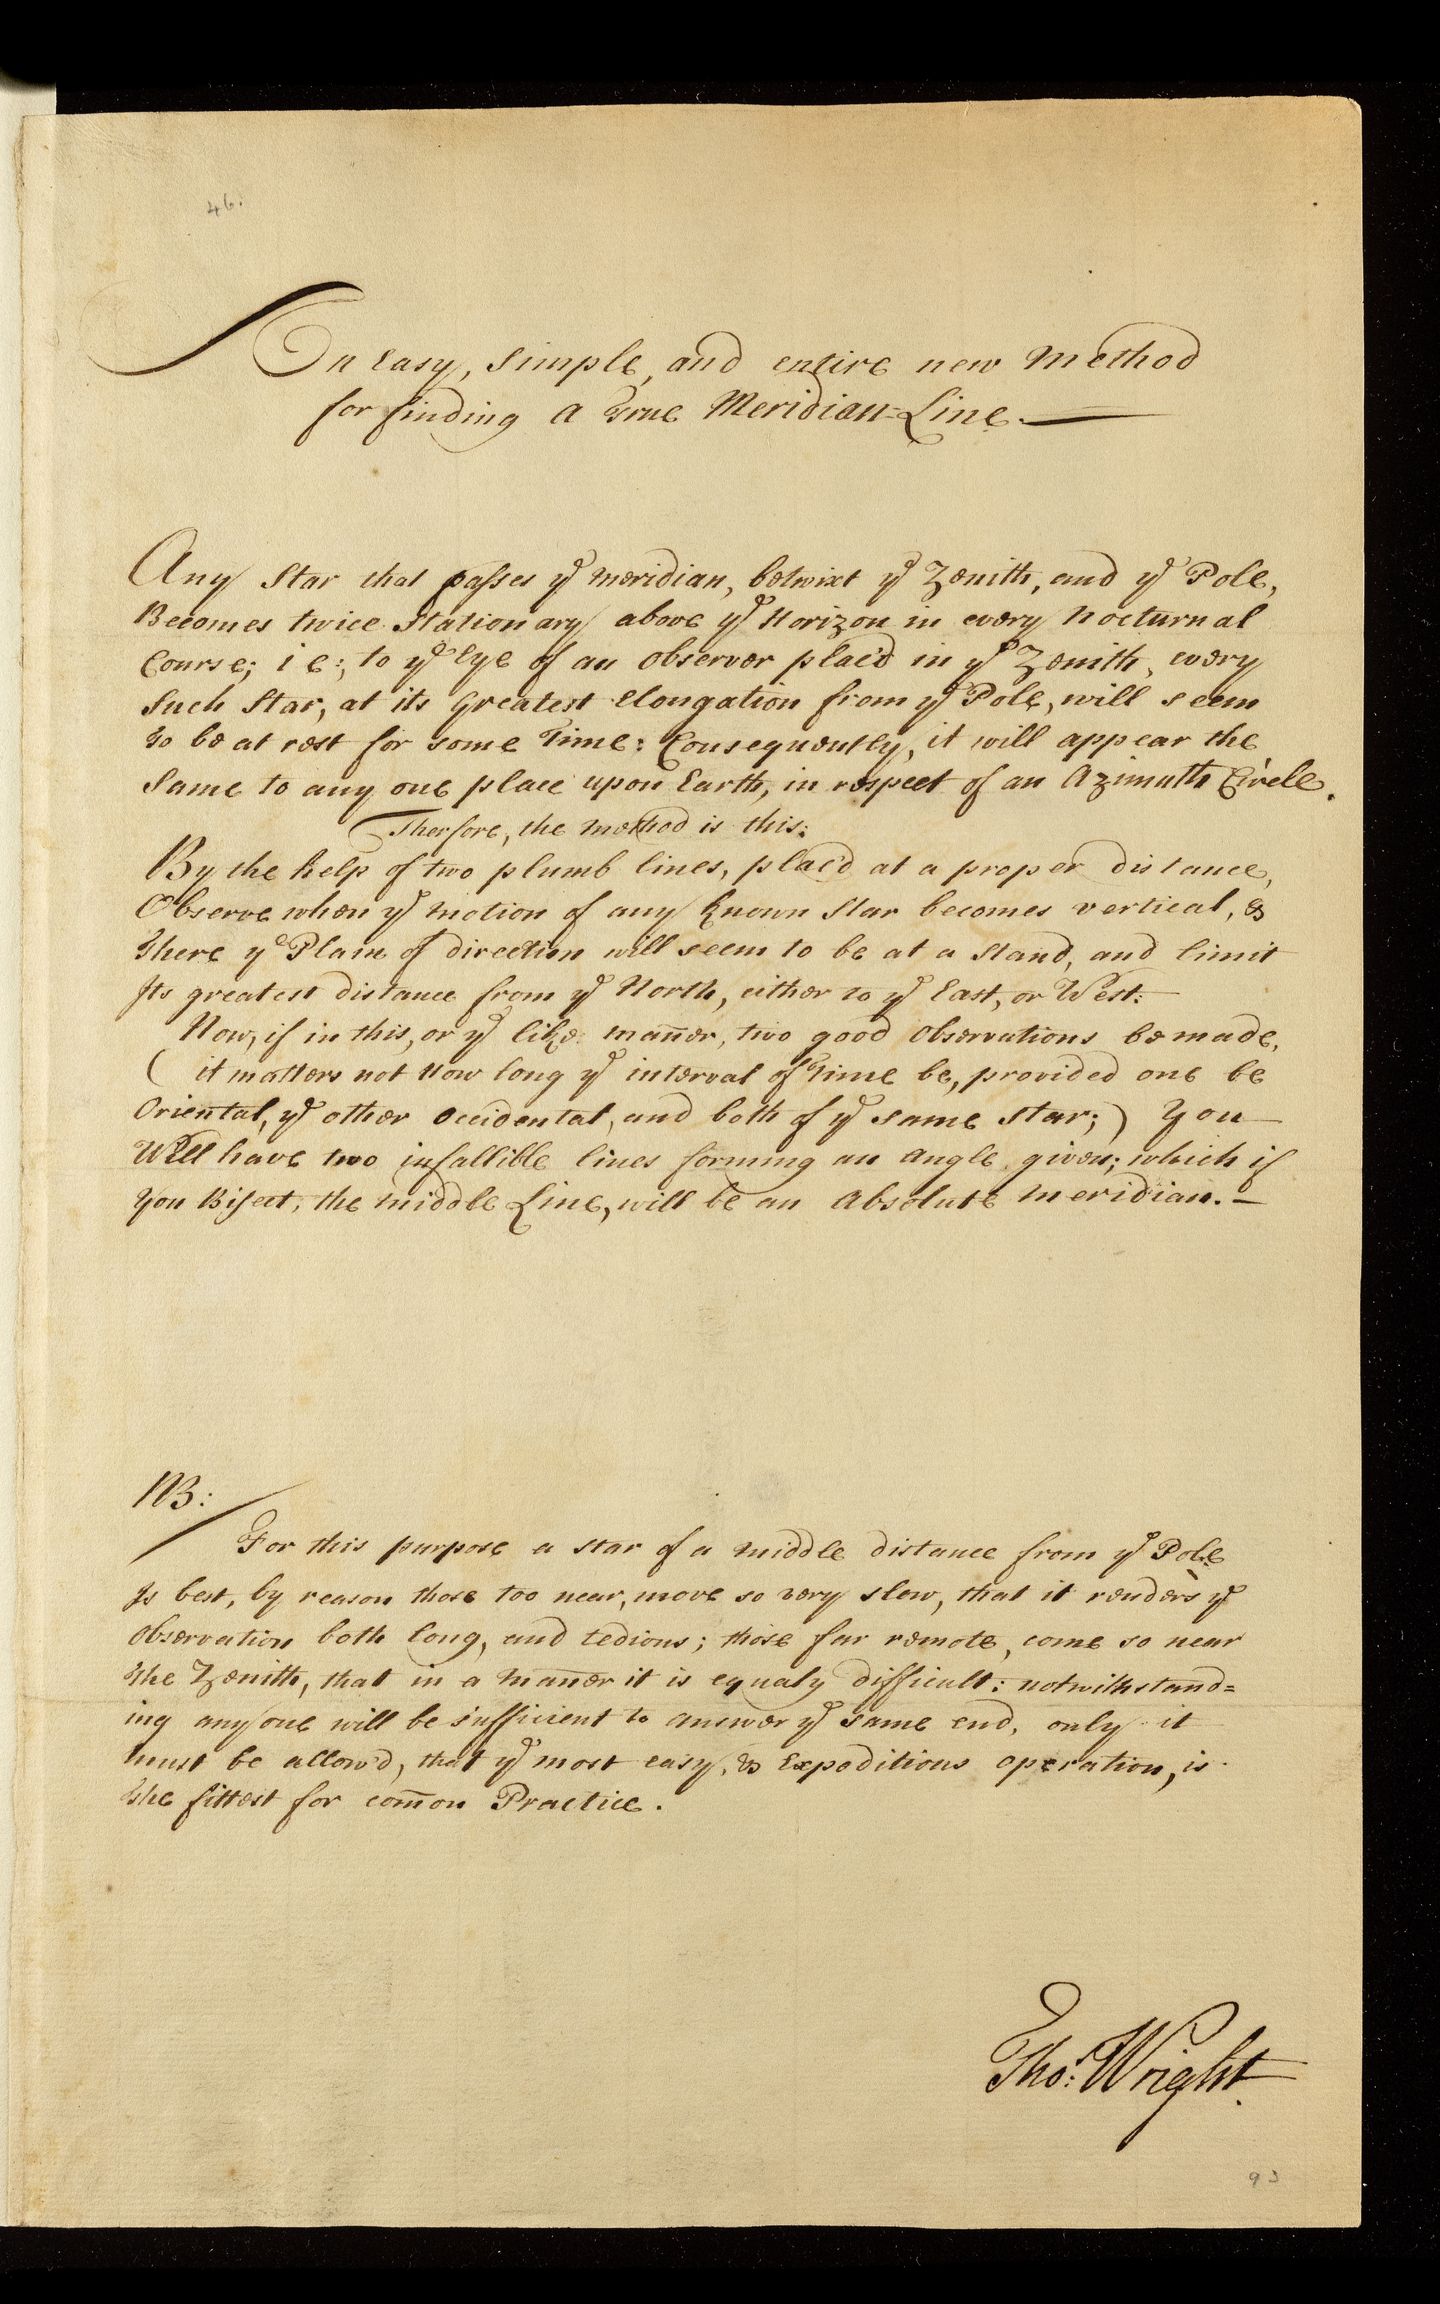 46.
An Easy, Simple, and entire new Method
for finding A True Meridian=Line.—
Any Star that passes yᵉ meridian, betwixt yᵉ Zenith, and yᵉ Pole,
Becomes twice Stationary above yᵉ Horizon in every Nocturnal
Course; i e; to yᵉ Eye of an observer plac'd in yᵉ Zenith, every
Such Star, at its Greatest Elongation from yᵉ Pole, will seem
to be at rest for some Time: Consequently, it will appear the
Same to any one place upon Earth, in respect of an Azimuth Circle.
Therfore, the method is this:
By the help of two plumb lines, plac'd at a proper distance,
Observe when yᵉ motion of any known Star becomes vertical, &
there yᵉ Plane of direction will seem to be at a Stand, and limit
Its greatest distance from yᵉ North, either to yᵉ East, or West:
Now, if in this, or yᵉ like mañer, two good observations be made,
( it matters not how long yᵉ interval of Time be, provided one be
Oriental, yᵉ other occidental, and both of yᵉ same Star; ) You
Will have two infallible lines forming an angle given; which if
You Bisect, the middle Line, will be an Absolute meridian.—
NB:
For this purpose a star of a middle distance from yᵉ Pole
Is best, by reason those too near, move so very slow, that it renders yᵉ
observation both long, and tedious; those far remote, come so near
the Zenith, that in a mañer it is equaly difficult: notwithstand=
ing any one will be sufficient to answer yᵉ same end, only it
must be allow'd, that yᵉ most easy, & Expeditious operation, is
the fittest for com̄on Practice.
Tho: Wright.
93